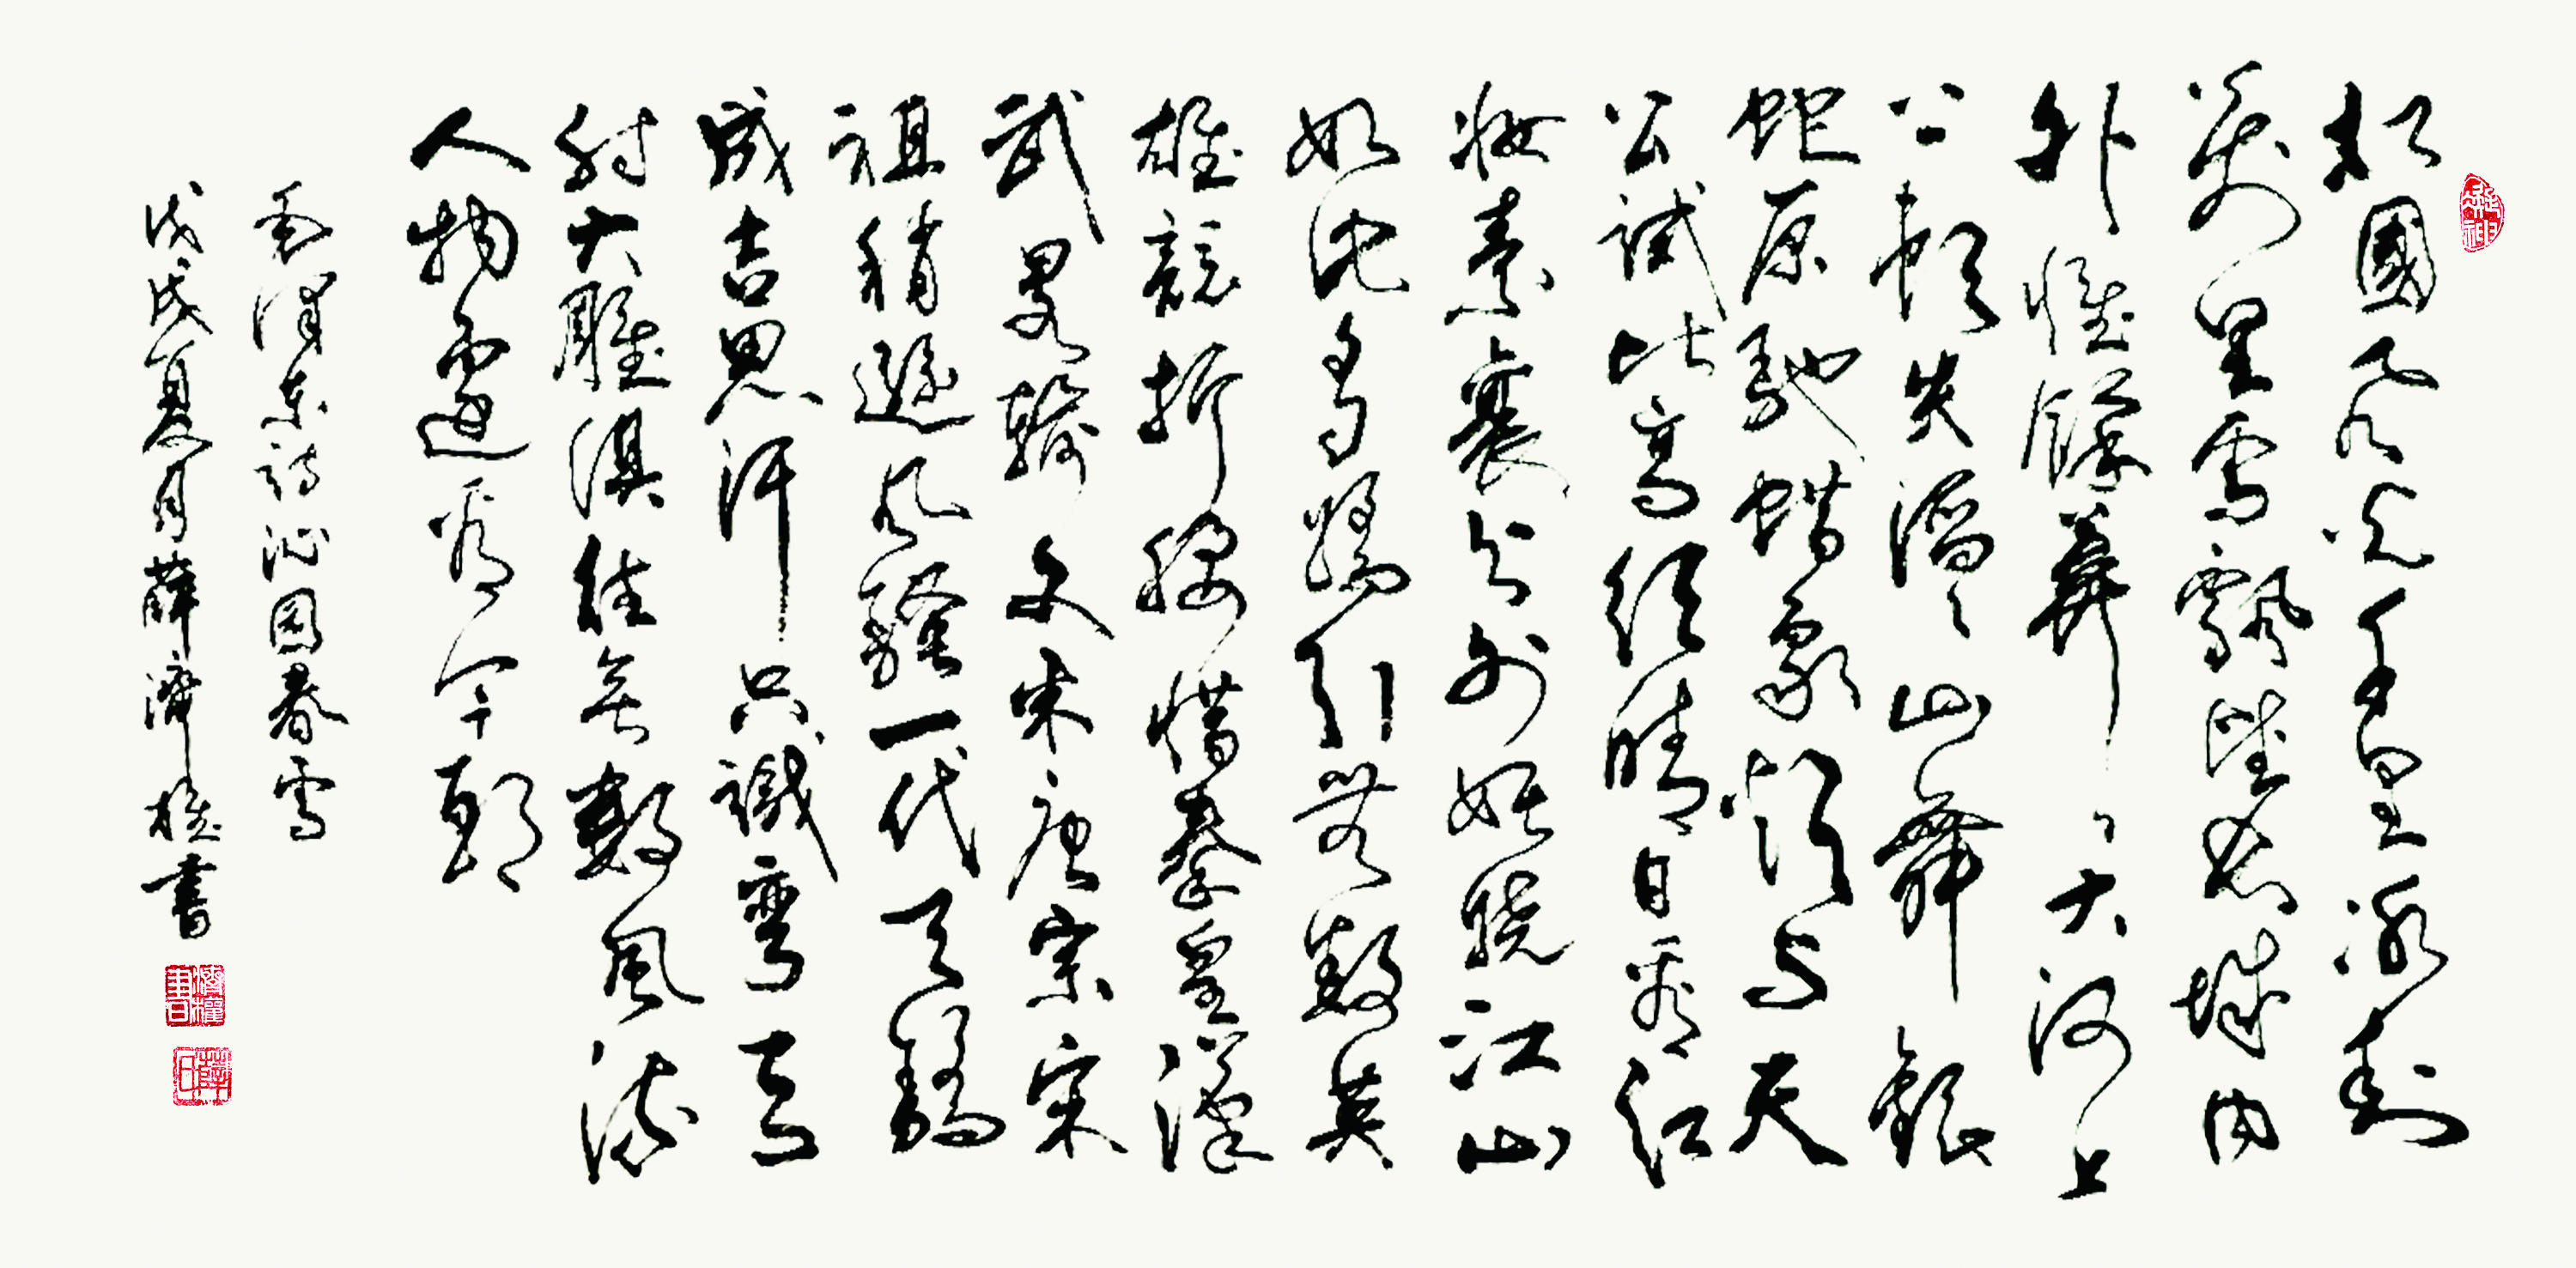 北國風光千里冰封
萬里雪飄望長城内
外惟餘莽々大河上
下頓失滔々山舞銀
蛇原馳蜡象欲与天
公試比高須晴日看紅
妝素裹分外妖嬈江山
如此多嬌引無數英
雄競折腰惜秦皇漢
武略輸文采唐宗宋
祖稍遜風騷一代天驕
成吉思汗只識彎弓
射大雕俱往矣數風流
人物還看今朝
毛澤東詩沁園春雪
戊戌夏月薛濟權書
濟權書
薛印